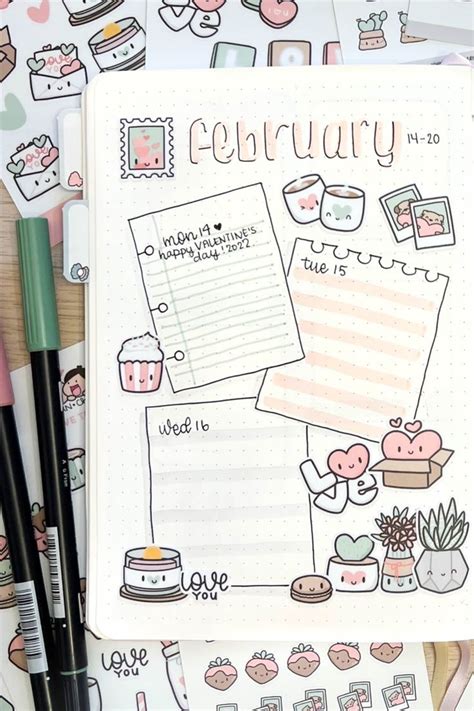 LOVE
YOU
february 14-20
mon 14
happy VALENTINE'S
day! 2022
tue 15
wed 16
Love
Love
YOU
love
YOU